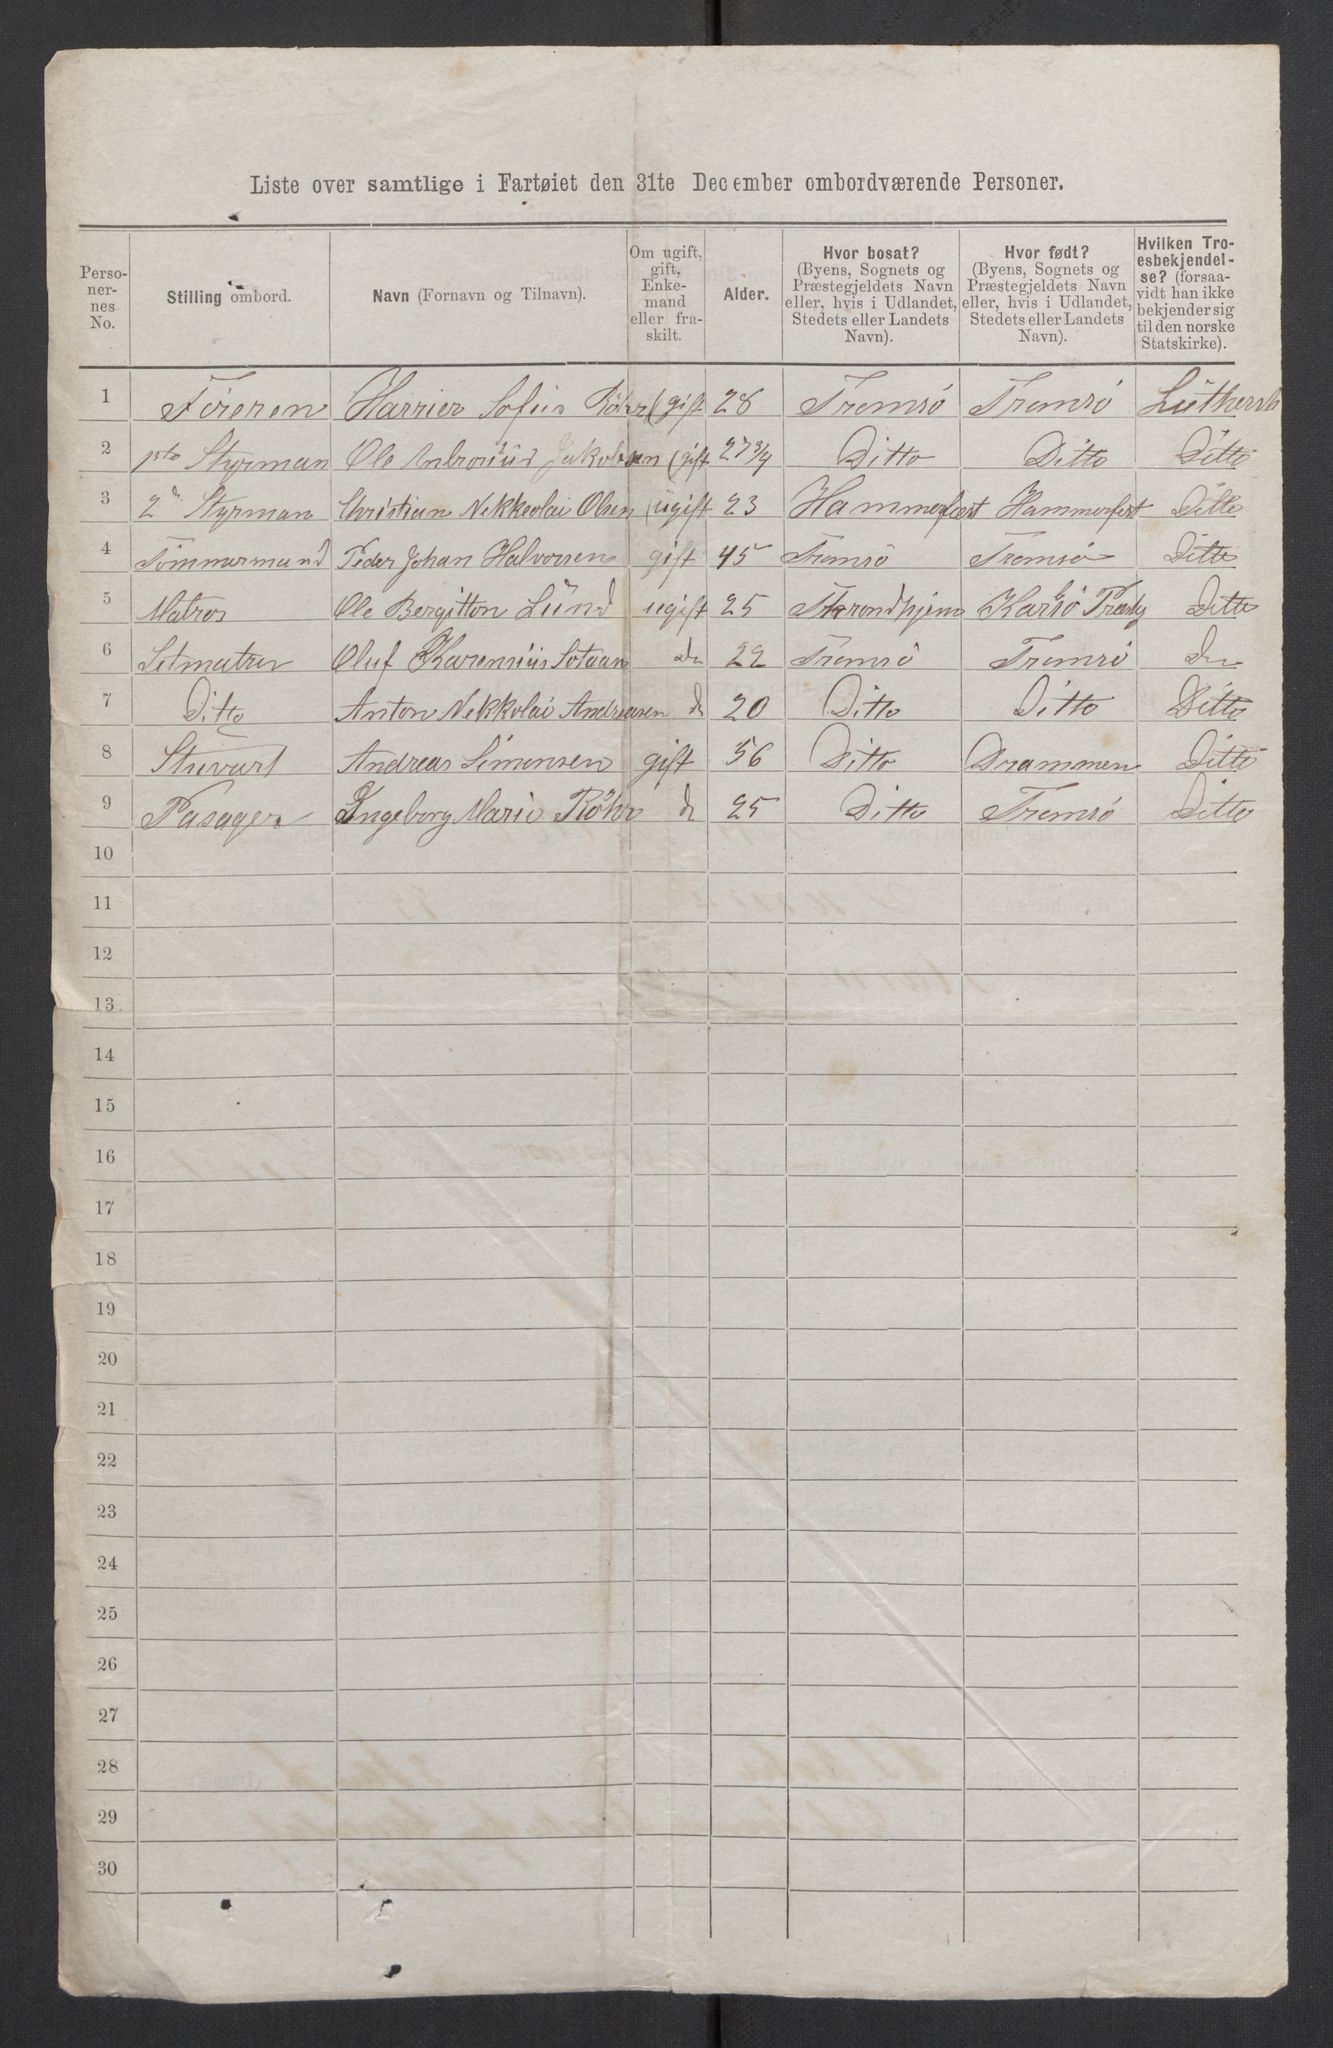 Liste over samtlige i Fartøiet den 31te December ombordværende Personer.
Perso-
ner-
nes
No.
Stilling ombord.
Navn (Fornavn og Tilnavn).
Om ugift,
gift,
Enke-
mand
eller fra-
skilt.
Alder.
Hvor bosat?
(Byens, Sognets og
Præstegjeldets Navn
eller, hvis i Udlandet,
Stedets eller Landets
Navn).
Hvor født?
(Byens, Sognets og
Præstegjeldets Navn
eller, hvis i Udlandet,
Stedets eller Landets
Navn).
Hvilken Tro-
esbekjendel-
se? (forsaa-
vidt han ikke
bekjender sig
til den norske
Statskirke).
1 Føreren Harrier Sofus Röhr (gift 28 Tromsö Tromsö
2 Styrman Ole Jakobsen (gift 27 3/4 Ditto Ditto Ditto
3 2d Styrman Christian Nekkolai Olsen (ugift 23 Hammerfest Hammerfest Ditto
4 Tömmermand Peder Johan Halvorsen gift 45 Tromsö Tromsö Ditto
5 Matros Ole Bergitton Lünd ugift 25 Throndhjem Karlsö Ditto
6 Letmatros Oluf Karensius do 22 Tromsö Tromsö do
7 Ditto Anton Nekkolai Andreasen do 20 Ditto Ditto Ditto
8 Stuvart Andreas Simonsen gift 56 Ditto Drammen Ditto
9 Pasager Ingeborg Marie Röhr do 25 Ditto Tromsö Ditto
10
11
12
13
14
15
16
17
18
19
20
21
22
23
24
25
26
27
28
29
30